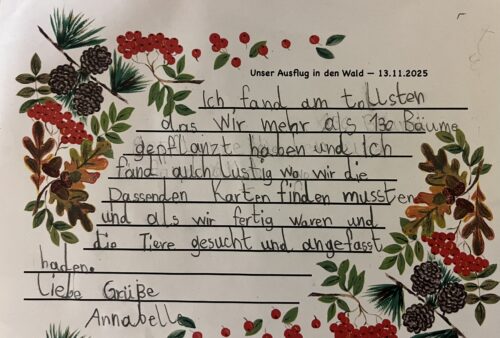 Unser Ausflug in den Wald – 13.11.2025
Ich fand am tollsten
das wir mehr als 130 Bäume
gepflanzt haben und Ich
fand auch lustig wo wir die
Passenden Karten finden mussten
und als wir fertig waren und
die Tiere gesucht und angefasst
haben.
Liebe Grüße
Annabelle